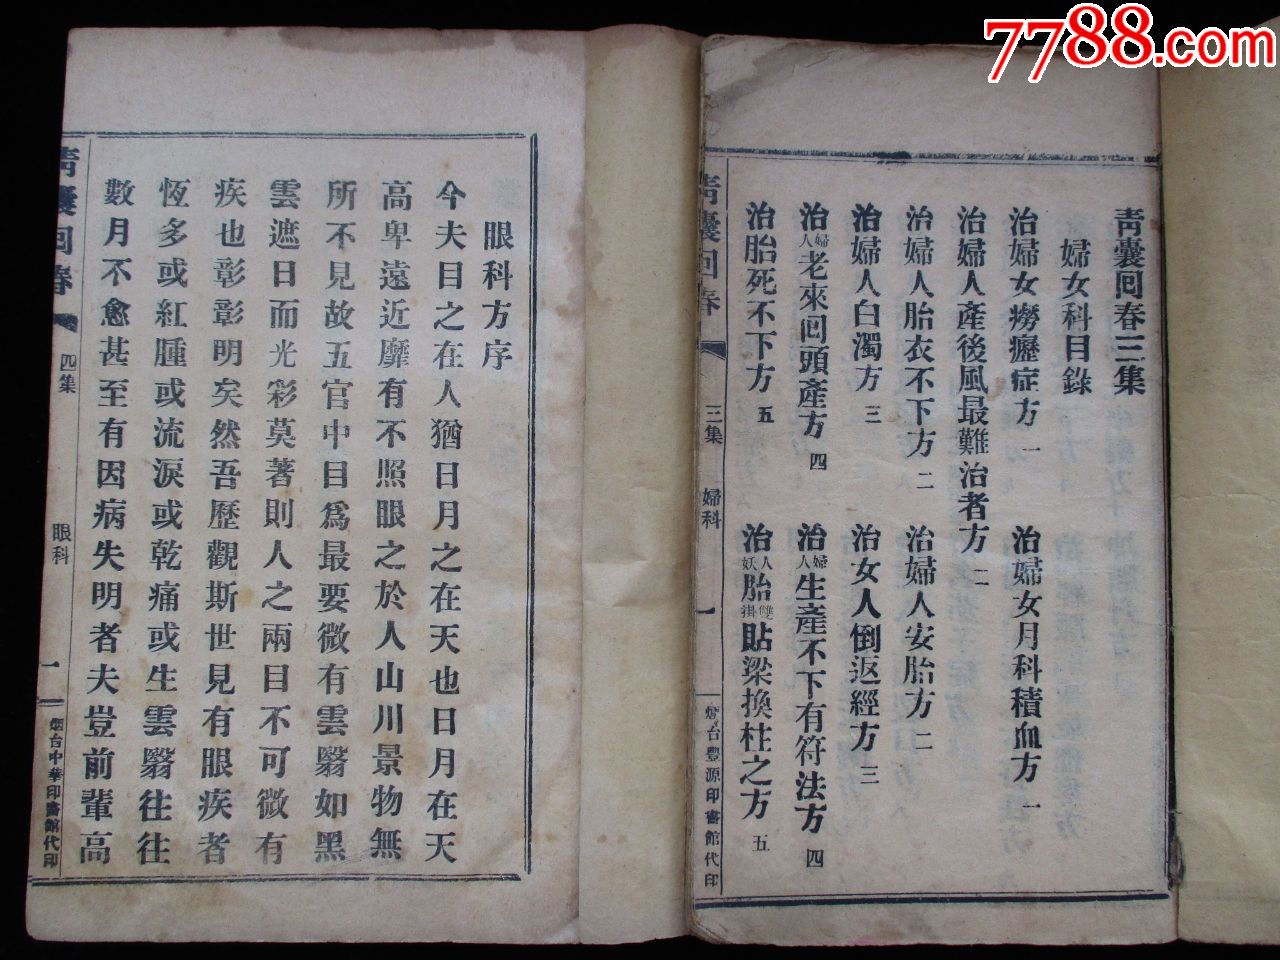 7788.com
青囊回春三集
婦女科目錄
治婦女癆癧症方 一
治婦女月科積血方 一
治婦人產後風最難治者方 二
治婦人胎衣不下方 二
治婦人安胎方 二
治婦人白濁方 三
治女人倒返經方 三
治婦人老來回頭產方 四
治婦人生產不下有符法方 四
治胎死不下方 五
治人妖胎雙掛貼梁換柱之方 五
青囊回春
三集
婦科
一
烟台豐源印書館代印
眼科方序
今夫目之在人猶日月之在天也日月在天
高卑遠近靡有不照眼之於人山川景物無
所不見故五官中目爲最要微有雲翳如黑
雲遮日而光彩莫著則人之兩目不可微有
疾也彰彰明矣然吾歷觀斯世見有眼疾者
恆多或紅腫或流淚或乾痛或生雲翳往往
數月不愈甚至有因病失明者夫豈前輩高
青囊回春
四集
眼科
一
烟台中華印書館代印